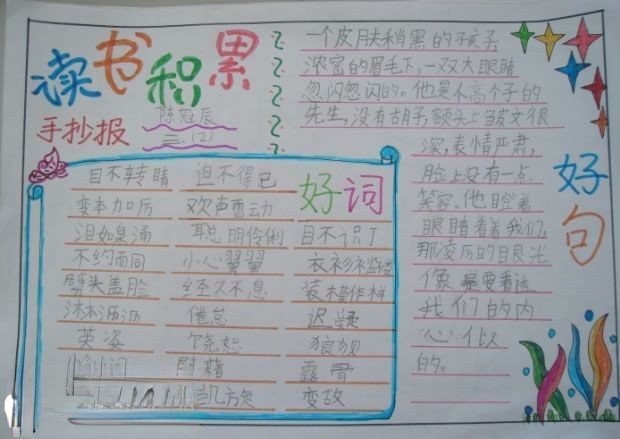 读书积累
手抄报
陈冠辰
三(2)
一个皮肤稍黑的孩子,
浓密的眉毛下,一双大眼睛
忽闪忽闪的。他是不高个子的
先生,没有胡子,额头上皱文很
深,表情严肃,
脸上没有一点
笑容。他瞪着
眼睛看着我们,
那凌厉的目光
像是要看透
我们的内
心似
的。
好句
好词
目不转睛 迫不得已
变本加厉 欢声雷动
泪如泉涌 聪明伶俐 目不识丁
不约而同 小心翼翼 衣衫褴褛
劈头盖脸 经久不息 装模作样
沸沸 倦怠 迟疑
英姿 饶恕 狼狈
露骨
变故